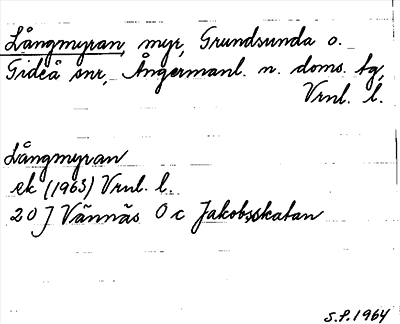 Långmyran, myr, Grundsunda o.
Gideå snr, Ångermanl. n. doms. tg,
Vrnl. l.
Långmyran
ek (1963) Vrnl. l.
20 J Vännäs O c Jakobsskatan
S.P. 1964